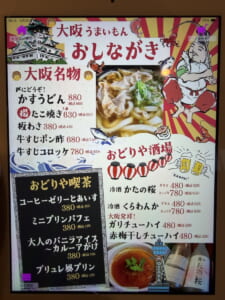 大阪うまいもん
おしながき
大阪名物
〆にどうぞ!
かすうどん 880
たこ焼き 630
板わさ 380
牛すじポン酢 680
牛すじコロッケ 780
おどりや酒場
冷酒 かたの桜 480
780
冷酒 くらわんか 480
780
大阪発祥!
ガリチューハイ 480
赤梅干しチューハイ 480
おどりや喫茶
コーヒーゼリーとあいす
380
ミニプリンパフェ
380
大人のバニラアイス
〜カルーアがけ
380
ブリュレ焼プリン
380